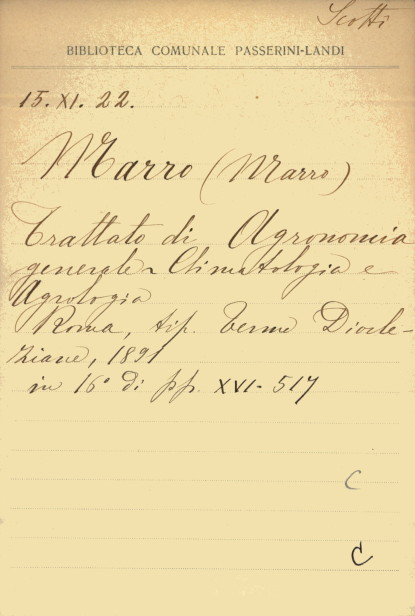 Scotti
BIBLIOTECA COMUNALE PASSERINI-LANDI
15. XI. 22.
Marro (Marro)
Trattato di Agronomia
generale - Climatologia e
Agrologia
Roma, tip. Terme Diocle-
ziane, 1891
in 16° di pp. XVI - 517
C
C